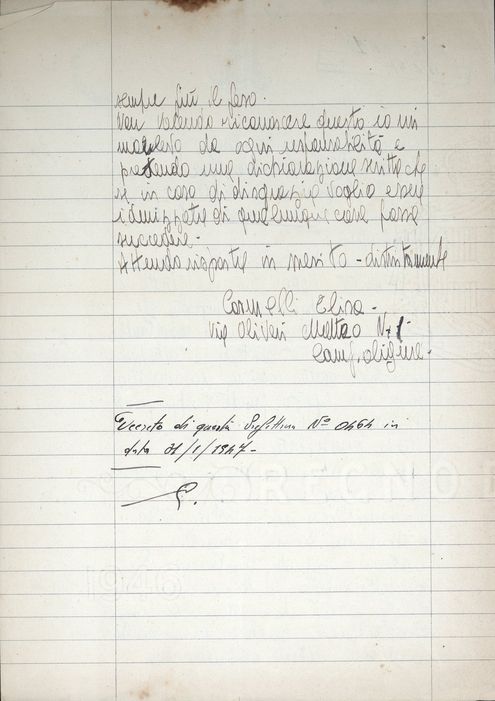 sempre più il peso.
Non volendo riconoscere questo io mi
manlevo da ogni responsabilità e
pretendo una dichiarazione scritta che
se in caso di disgrazia voglio essere
idenizzata di qualunque cosa possa
succedere.-
Attendo risposta in merito - distintamente
Carmelli Elisa -
Via Olivieri Matteo N. 1 -
Camp. Ligure -
Decreto di questa Prefettura Nº 0464 in
data 31/1/1947 -
REGNO
1946